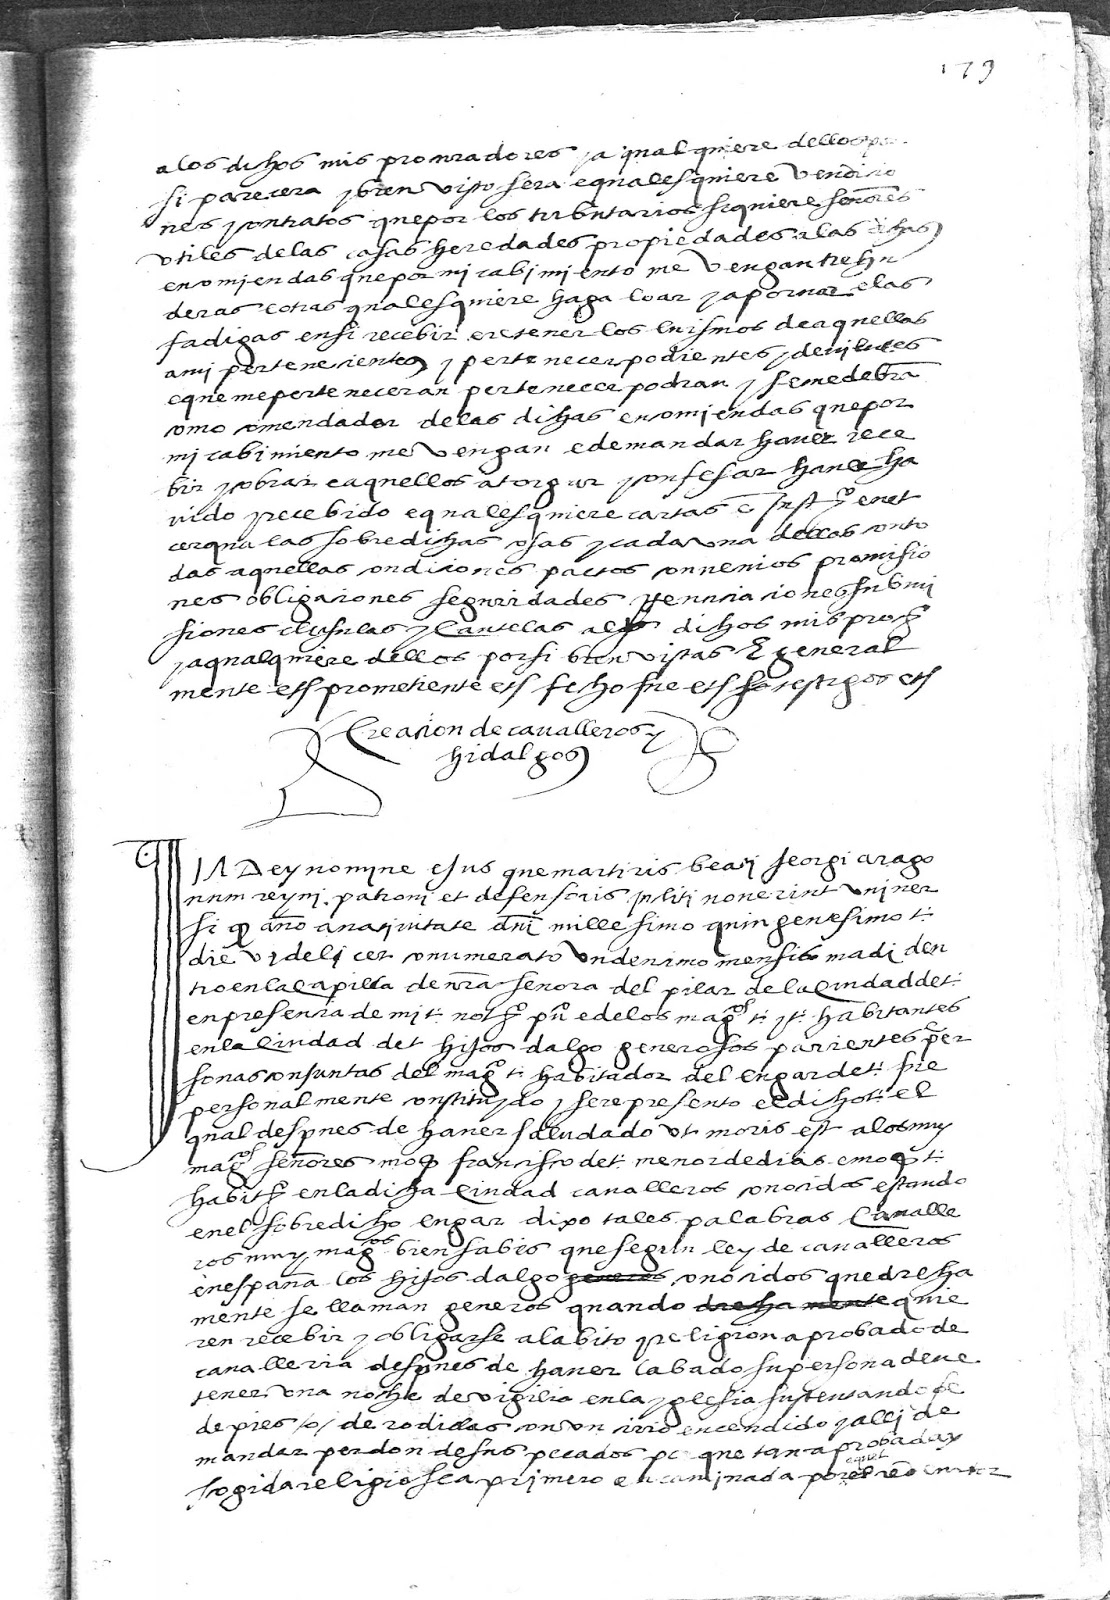 179
a los dichos mis procuradores ya qualquiere dellos por
si parecera y bien visto sera e qualesquiere vendicio
nes y contratos que por los tributarios siquiere señores
utiles de las casas heredades propiedades a las dichas
encomiendas que por mi cabimiento me vengan trehu
deras e otras qualesquiere haga loar y aporuar e las
fadigas en si recebir e retener los luismos de aquellas
a mi pertenecientes y pertenecer podientes y devientes
e que me perteneceran pertenecer podran y se me debrā
como comendador de las dichas encomiendas que por
mi cabimiento me vengan e demandar hauer rece
bir y cobrar e aquellos atorgar y confesar hauer ha
uido y recebido e qualesquiere cartas e inst.º en et
cerqua las sobredichas cosas y cada una dellas con to
das aquellas condiciones pactos conuenios promisio
nes obligaciones seguridades renunciaciones submi
siones clusulas y cautelas a los dichos mis proc.
y a qualquiere dellos por si bien vistas E general
mente ets prometiente ets fecho fue ets testigos ets
Creacion de caualleros y
hidalgos
IN Dey nomine ejus que martiris beaty Jeorgi arago
num reyni patroni et defensoris inliti nouerint uniuer
si q año a natiuitate dñi millesimo quingentesimo t:
die videlicet connumerato undecimo mensis madi den
tro en la Capilla de nra señora del pilar de la Ciudad de t:
en presencia de mi t: not. pu. e de los mag.os t: y t: habitantes
en la Ciudad de t: hijos dalgo generosos parientes e per
sonas conjuntas del mag.co t: habitador del lugar de t: fue
personalmente constituydo y se represento el dicho t: el
qual despues de hauer saludado ut moris est a los muy
mag.os señores mo. francisco de t: menor de dias e mo. t:
habit. en la dicha Ciudad caualleros conocidos estando
en el sobredicho lugar dixo tales palabras Caualle
ros muy mag.cos bien sabis que segun ley de caualleros
en españa los hijos dalgo generos conocidos que drecha
mente se llaman generos quando drecha mente quie
ren recebir y obligarse al abito y religion aprobado de
caualleria despues de hauer labado su persona deue
tener una noche de vigilia en la yglesia sustentando se
de pies /o/ de rodillas con un cirio encendido y alli de
mandar perdon de sus pecados que tan aprobada y
scogida religio sea primero encaminada por